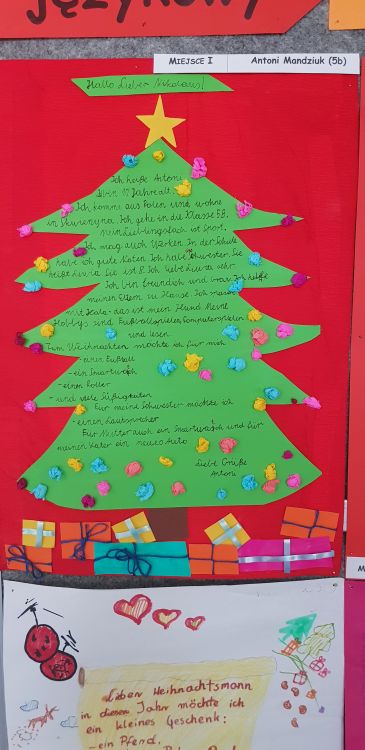 JĘZYKOWY
MIEJSCE I
Antoni Mandziuk (5b)
Hallo Lieber Nikolaus!
Ich heiße Antoni.
Ich bin 10 Jahre alt.
Ich komme aus Polen und wohne
in Skwierzyna. Ich gehe in die Klasse 5B.
Mein Lieblingsfach ist Sport.
Ich mag auch Werken. In der Schule
habe ich gute Noten. Ich habe Schwester. Sie
heißt Liwia. Sie ist 8. Ich liebe Liwia sehr.
Ich bin freundlich und brav. Ich helfe
meinen Eltern zu Hause. Ich
mit Hala - das ist mein Hund. Meine
Hobbys sind Fußballspielen, Computerspielen
und lesen.
Zum Weihnachten möchte ich für mich
- einen Fußball
- ein Smartwatch
- einen Roller
- und viele Süßigkeiten
Für meine Schwester möchte ich
- einen Lautsprecher
Für Mutter auch ein Smartwatch und für
meinen Vater ein neues Auto
Liebe Grüße
Antoni
Lieben Weihnachtsmann
in diesen Jahr möchte ich
ein kleines Geschenk:
- ein Pferd,